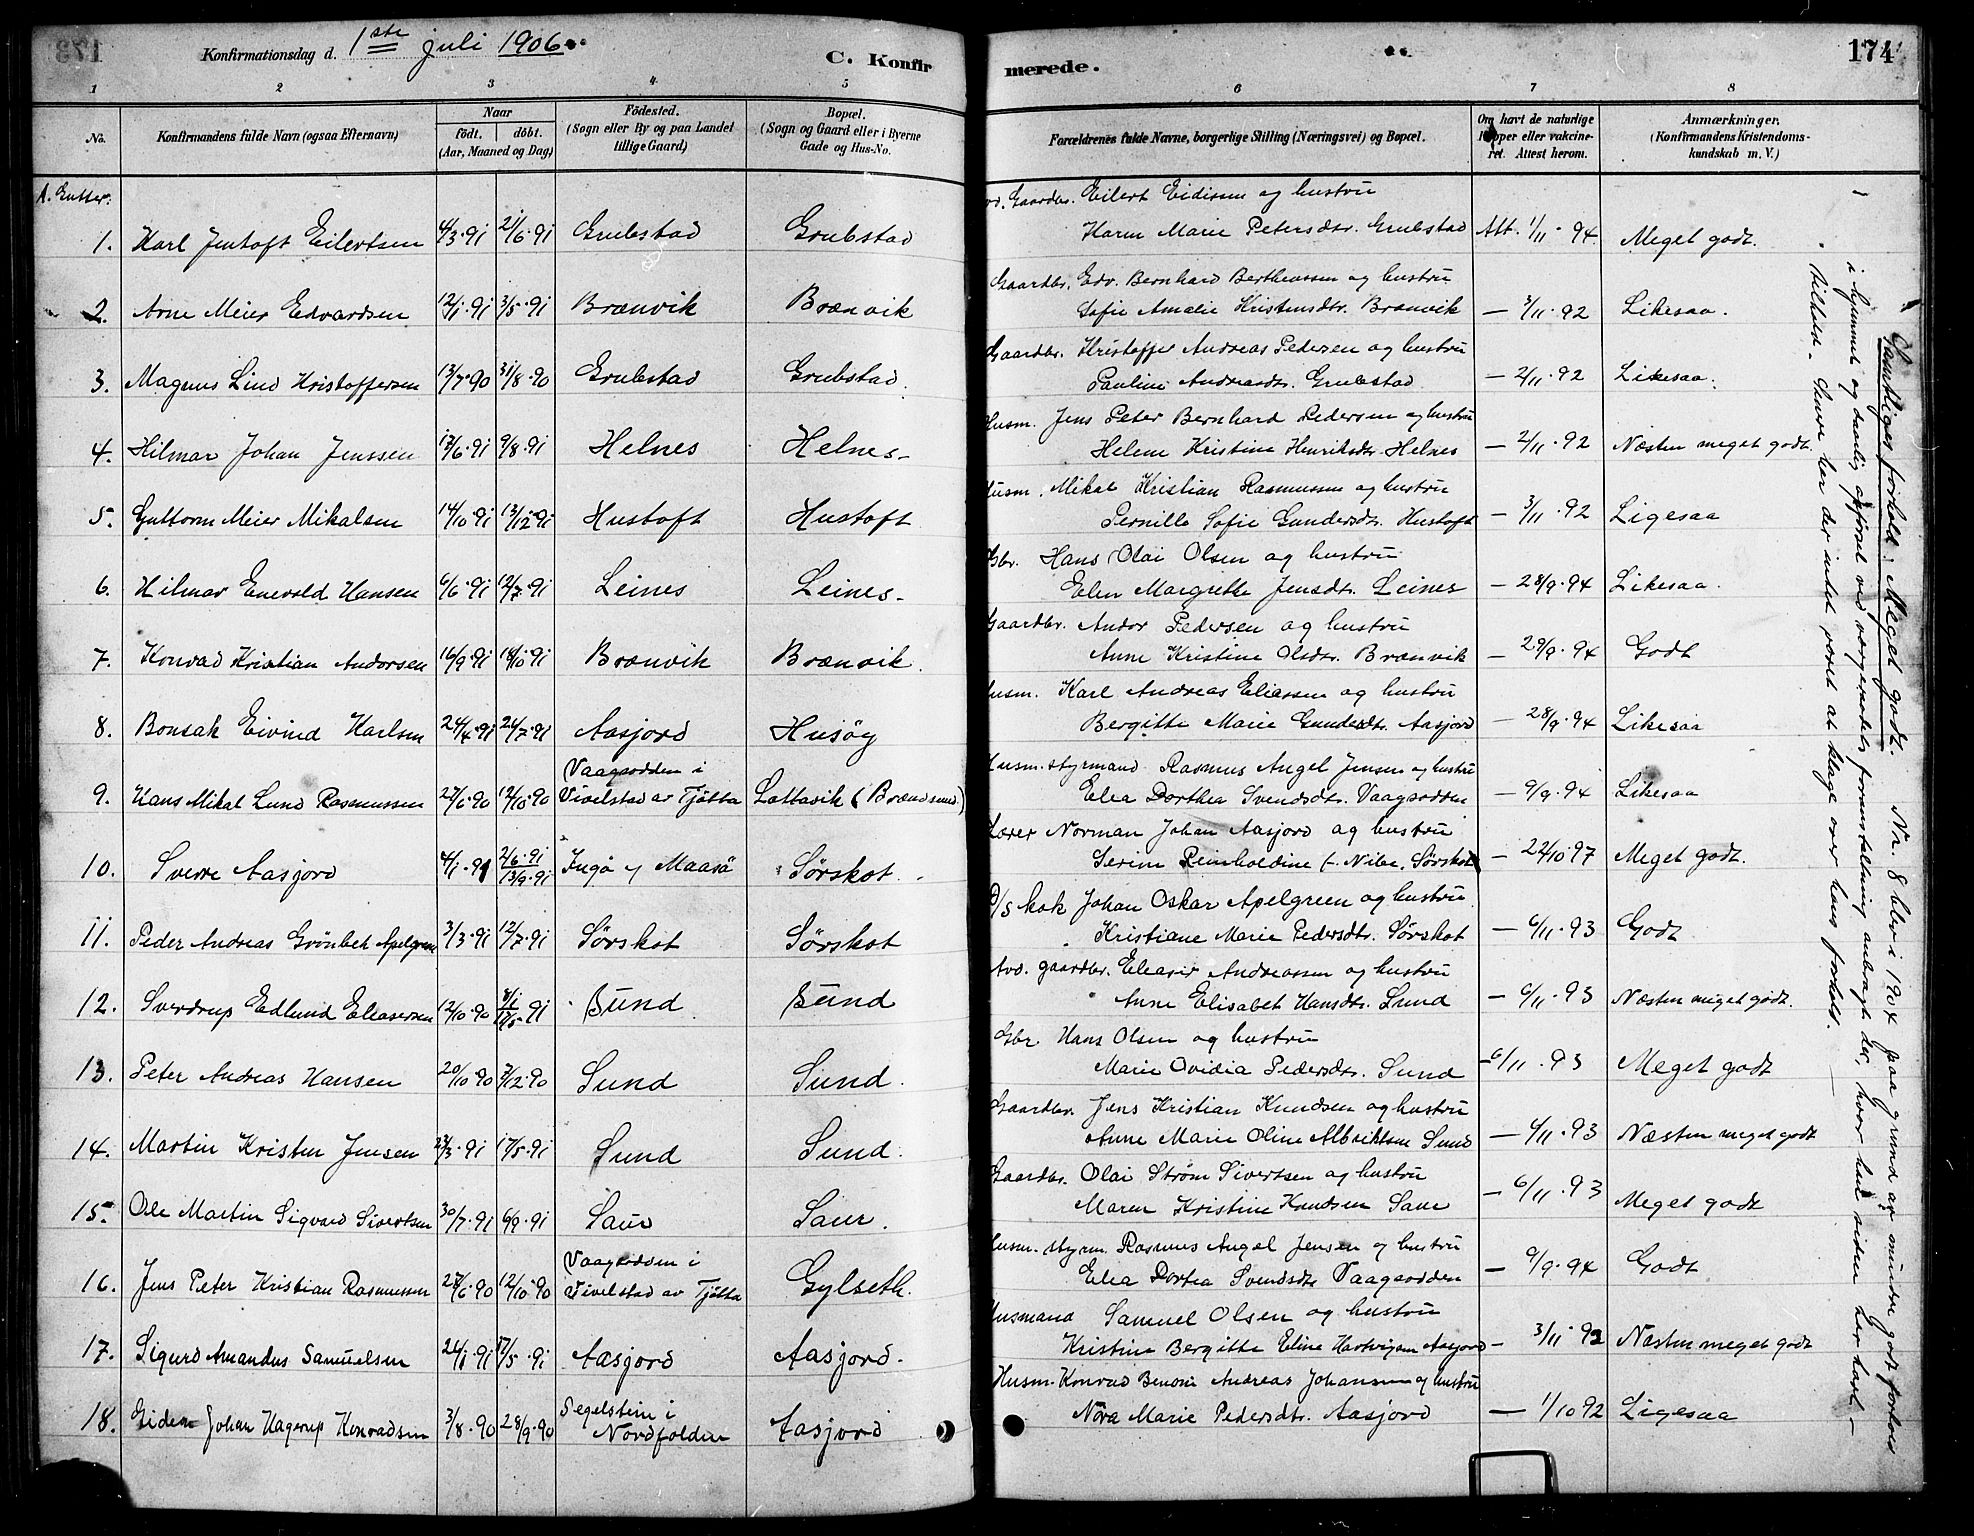 Konfirmationsdag d. 1ste juli 1906.
C. Konfir merede.
174
1 2 3 4 5 6 7 8
No.
Konfirmandens fulde Navn (ogsaa Efternavn)
Naar
födt. döbt.
(Aar, Maaned og Dag)
Födested.
(Sogn eller By og paa Landet
tillige Gaard)
Bopæl.
(Sogn og Gaard eller i Byerne
Gade og Hus-No.
Forældrenes fulde Navne, borgerlige Stilling (Næringsvei) og Bopæl.
Om havt de naturlige
Kopper eller vakcine-
ret. Attest herom.
Anmærkninger.
(Konfirmandens Kristendoms-
kundskab m. V.)
A. Gutter.
Gaardbr. Eilert Eidissen og hustru
1. Karl Jentoft Eilertsen 4/3·91 21/6·91 Grubstad Grubstad Karen Marie Petersdtr. Grubstad Att. 1/11·94 Meget godt.
Gaardbr. Edv. Bernhard Bertheussen og hustru
2. Arne Meier Edvardsen 12/1·91 3/5·91 Brænvik Brænvik Sofie Amalie Kristensdtr. Brænvik — 3/11·92 Likesaa.
Gaardbr. Kristoffer Andreas Pedersen og hustru
3. Magnus Lind Kristoffersen 13/7·90 31/8·90 Grubstad Grubstad. Pauline Andreasdtr. Grubstad — 2/11·92 Likesaa.
Husm. Jens Peter Bernhard Pedersen og hustru
4. Hilmar Johan Jenssen 17/6·91 9/8·91 Helnes Helnes- Helene Kristine Henriksdtr. Helnes — 2/11·92 Næsten meget godt.
Husm. Mikal Kristian Rasmussen og hustru
5. Guttorm Meier Mikalsen 14/10·91 13/12·91 Hustoft Hustoft Pernille Sofie Gundersdtr. Hustoft — 3/11·92 Ligesaa
Gbr. Hans Olai Olsen og hustru
6. Hilmar Enevold Hansen 6/6·91 12/7·91 Leines Leines- Elen Margrethe Jensdtr. Leines — 28/9·94 Likesaa.
Gaardbr. Andor Pedersen og hustru
7. Konrad Kristian Andorsen 16/9·91 18/10·91 Brænvik Brænvik. Anne Kristine Olsdtr. Brænvik — 29/9·94 Godt
Husm. Karl Andreas Eliassen og hustru
8. Bonsak Eivind Karlsen 24/4·91 26/7·91 Aasjord Husöy Bergitte Marie Gundersdtr. Aasjord — 28/9·94 Likesaa
Vaagsodden i
Husm. styrmand Rasmus Angel Jensen og hustru
9. Hans Mikal Lund Rasmussen 27/6·90 12/10·90 Vivelstad av Tjötta Lottavik (Brændsund) Elea Dorthea Svendsdtr. Vaagsodden — 9/9·94 Likesaa
Lærer Norman Johan Aasjord og hustru
10. Sverre Aasjord 4/1·91 2/6·91 13/9·91 Ingö Maasö Sørskot. Serine Reinholdine f. Nilse, Sørskot — 22/10·97 Meget godt.
D/s kok Johan Oskar Apelgreen og hustru
11. Peder Andreas Grönbek Apelgreen 3/3·91 12/7·91 Sørskot Sørskot Kristiane Marie Pedersdtr. Sørskot — 6/11·93 Godt
Avd. gaardbr. Eleaser Andreassen og hustru
12. Sverdrup Edlund Eleasersen 12/10·90 8/1 17/5·91 Sund Sund Anne Elisabet Hansdtr. Sund — 6/11·93 Næsten meget godt.
Gbr Hans Olsen og hustru
13. Peter Andreas Hansen 20/10·90 7/12·90 Sund Sund. Marie Ovidia Pedersdtr. Sund — 6/11·93 Meget godt
Gaardbr. Jens Kristian Knudsen og hustru
14. Martin Kristen Jensen 23/3·91 17/5·91 Sund Sund. Anne Marie Oline Albriktsen Sund — 6/11·93 Næsten meget godt
Gaardbr. Olai Strøm Sivertsen og hustru
15. Ole Martin Sigvard Sivertsen 30/7·91 6/9·91 Saur Saur. Maren Kristine Knudsen Saur — 6/11·93 Meget godt
Vaagsodden i
Husm. styrm. Rasmus Angel Jensen og hustru
16. Jens Peter Kristian Rasmussen 27/6·90 12/10·90 Vivelstad av Tjötta Gylseth. Elea Dortea Svendsdtr Vaagsodden — 9/9·94 Godt
Husmand Samuel Olsen og hustru
17. Sigurd Amandus Samuelsen 24/1·91 17/5·91 Aasjord Aasjord. Kristine Bergitte Eline Hartvigsen Aasjord — 3/11·92 Næsten meget godt
Segelstein i
Husm. Konrad Benoni Andreas Johansen og hustru
18. Johan Hagerup Konradsen 3/8·90 28/9·90 Nordfolden Aasjord Nora Marie Pedersdtr. Aasjord — 1/10 92 Ligesaa
Samtliges forhold: Meget godt. Nr. 8 blev i 1904 paa grund av mindre godt forhold
i hjemmet og daarlig opförsel ved vergeraadets foranstaltning anbragt der, hvor han siden har havt
tilhold. Senere har der intet været at klage over hans forhold. —